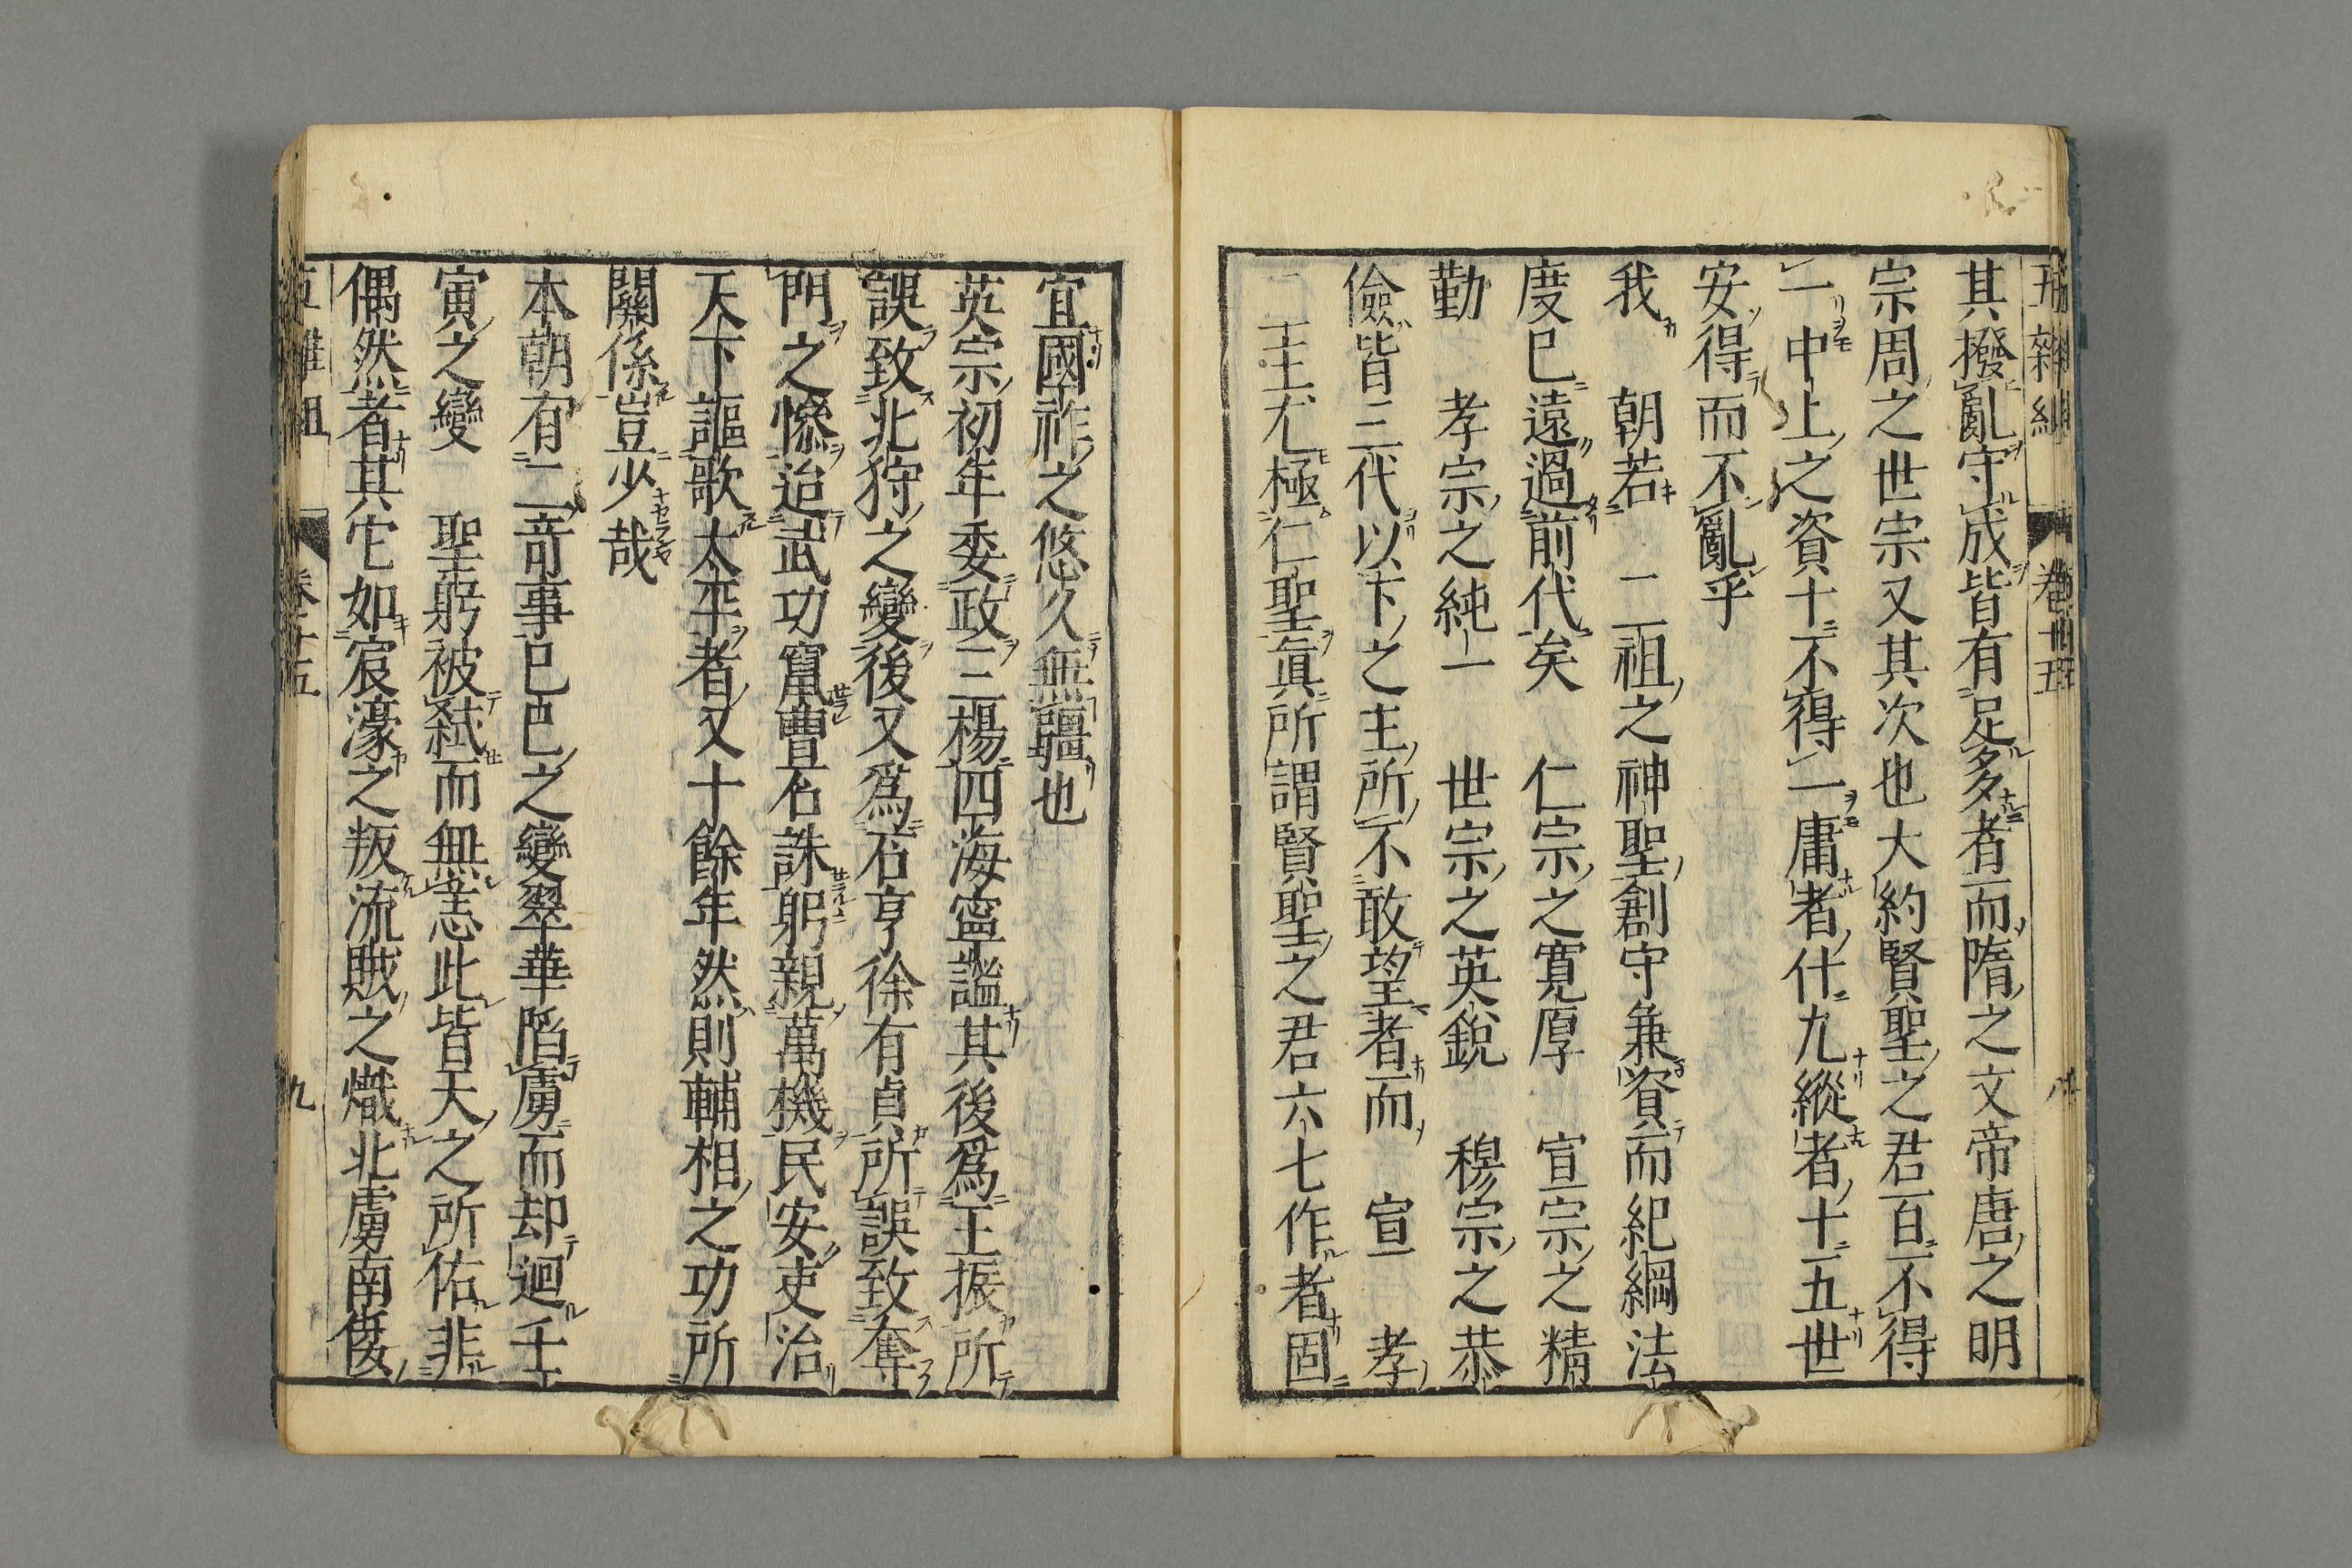 五雜組 卷十五 八
其撥亂守成皆有足多者而隋之文帝唐之明
宗周之世宗又其次也大約賢聖之君百不得
一中上之資十不得一庸者什九縱者十五世
安得而不亂乎
我 朝若 二祖之神聖創守兼資而紀綱法
度已遠過前代矣 仁宗之寬厚 宣宗之精
勤 孝宗之純一 世宗之英銳 穆宗之恭
儉皆三代以下之主所不敢望者而 宣 孝
二主尤極仁聖眞所謂賢聖之君六七作者固
宜國祚之悠久無疆也
英宗初年委政三楊四海寧謐其後爲王振所
誤致北狩之變後又爲石亨徐有貞所誤致奪
門之慘迨武功竄曹石誅躬親萬機民安吏治
天下謳歌太平者又十餘年然則輔相之功所
關係豈少哉
本朝有二奇事己巳之變翠華陷虜而却迴壬
寅之變 聖躬被弑而無恙此皆天之所佑非
偶然者其它如宸濠之叛流賊之熾北虜南倭
五雜組 卷十五 九